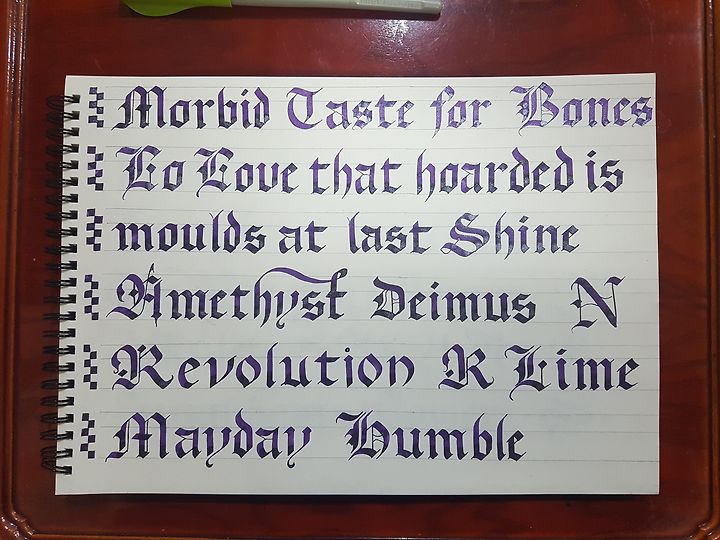 Morbid Taste for Bones
Lo Love that hoarded is
moulds at last Shine
Amethyst Deimus N
Revolution R Lime
Mayday Humble